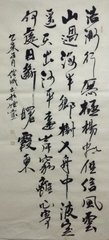 浩渺行無極揚帆但信風雲
山過海半鄉樹入舟中波定
遙天出沙平遠岸窮離心寄
何處目斷曙霞東